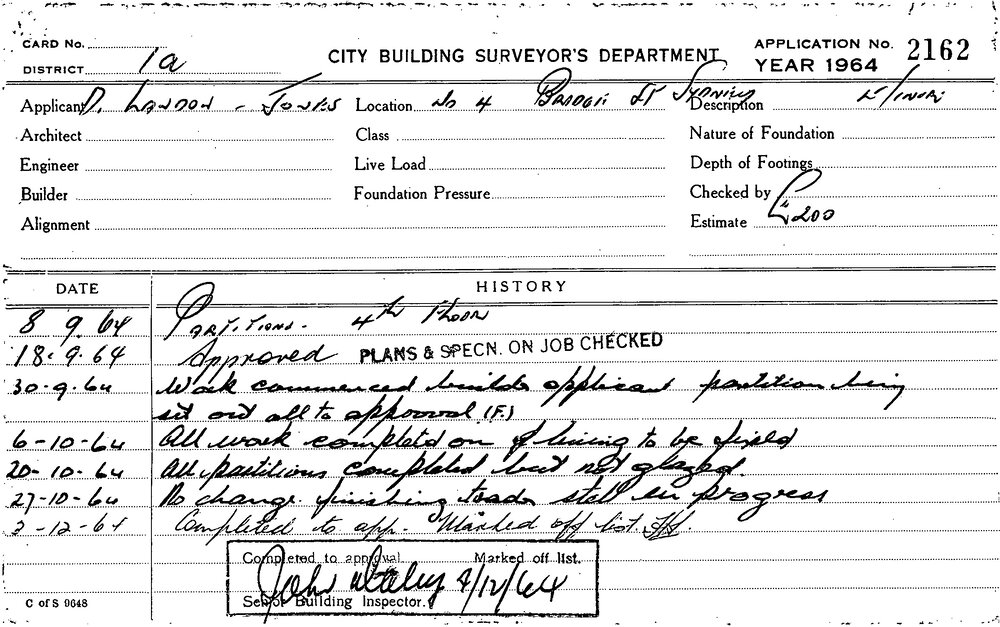 CARD No.
DISTRICT 1a
CITY BUILDING SURVEYOR'S DEPARTMENT
APPLICATION No. 2162
YEAR 1964
Applicant D. Landon - Jones Location No 4 St Sydney Description
Architect Class Nature of Foundation
Engineer Live Load Depth of Footings
Builder Foundation Pressure Checked by
Alignment Estimate £200
DATE HISTORY
8 9. 64 Partitions. 4th Floor
18. 9. 64 Approved PLANS & SPECN. ON JOB CHECKED
30-9-64 Work commenced builder applicant partition being
set out all to approval (F.)
6-10-64 All work completed on lining to be fixed
20-10-64 All partitions completed but not glazed.
27-10-64 No change. finishing trades still in progress
2-12-64 Completed to app. Marked off list.
Completed to approval. Marked off list.
John 8/12/64
Senior Building Inspector.
C of S 9648